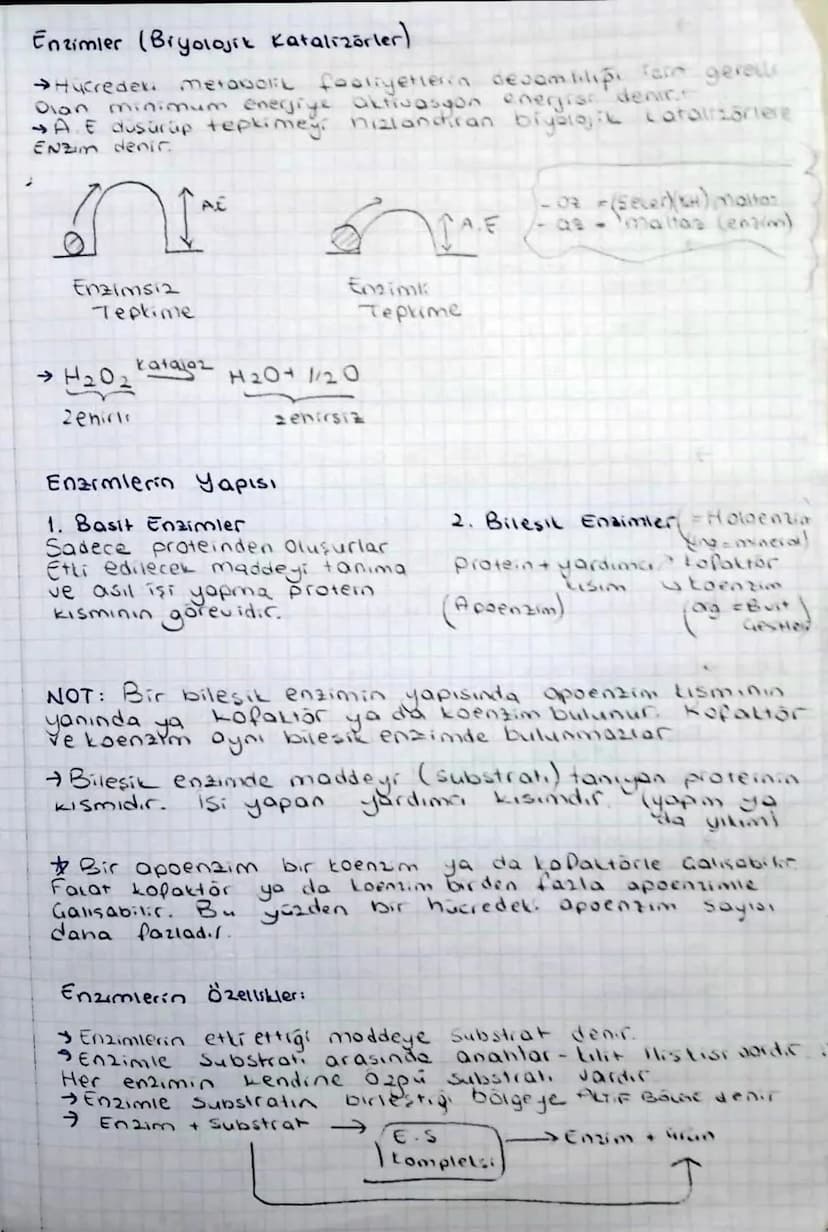 Enzimler (Biyolojik Katalizörler)
→ Hücredeki metabolik faaliyetlerin devamlılığı için gerekli
olan minimum enerjiye aktivasyon enerjisi denir.
→ A.E düşürüp tepkimeyi hızlandıran biyolojik katalizörlere
ENZim denir.
AE
A.E
- oz = (Şeker)(KH) maltoz
- az = maltaz (enzim)
Enzimsiz
Tepkime
Enzimli
Tepkime
→ H2O2 katalaz H2O + 1/2O
zehirli
zehirsiz
Enzimlerin Yapısı
1. Basit Enzimler
Sadece proteinden oluşurlar
Etki edilecek maddeyi tanıma
ve asıl işi yapma protein
kısmının görevidir.
2. Bileşik Enzimler = Holoenzim
= mineral)
Protein + yardımcı → kofaktör
kısım ↳ koenzim
(Apoenzim)
(org =
NOT: Bir bileşik enzimin yapısında apoenzim kısmının
yanında ya kofaktör ya da koenzim bulunur. Kofaktör
ve koenzim aynı bileşik enzimde bulunmazlar
→ Bileşik enzimde maddeyi (substratı) tanıyan proteinin
kısmıdır. İşi yapan yardımcı kısımdır. (yapım ya
da yıkım)
★ Bir apoenzim bir koenzim ya da kofaktörle çalışabilir
Fakat kofaktör ya da koenzim birden fazla apoenzimle
çalışabilir. Bu yüzden bir hücredeki apoenzim sayısı
daha fazladır.
Enzimlerin Özellikleri
→ Enzimlerin etki ettiği maddeye substrat denir.
→ Enzimle substratı arasında anahtar - kilit ilişkisi vardır.
Her enzimin kendine özgü substratı vardır
→ Enzimle substratın birleştiği bölgeye Aktif Bölge denir
→ Enzim + Substrat → E.S → Enzim + ürün
kompleksi